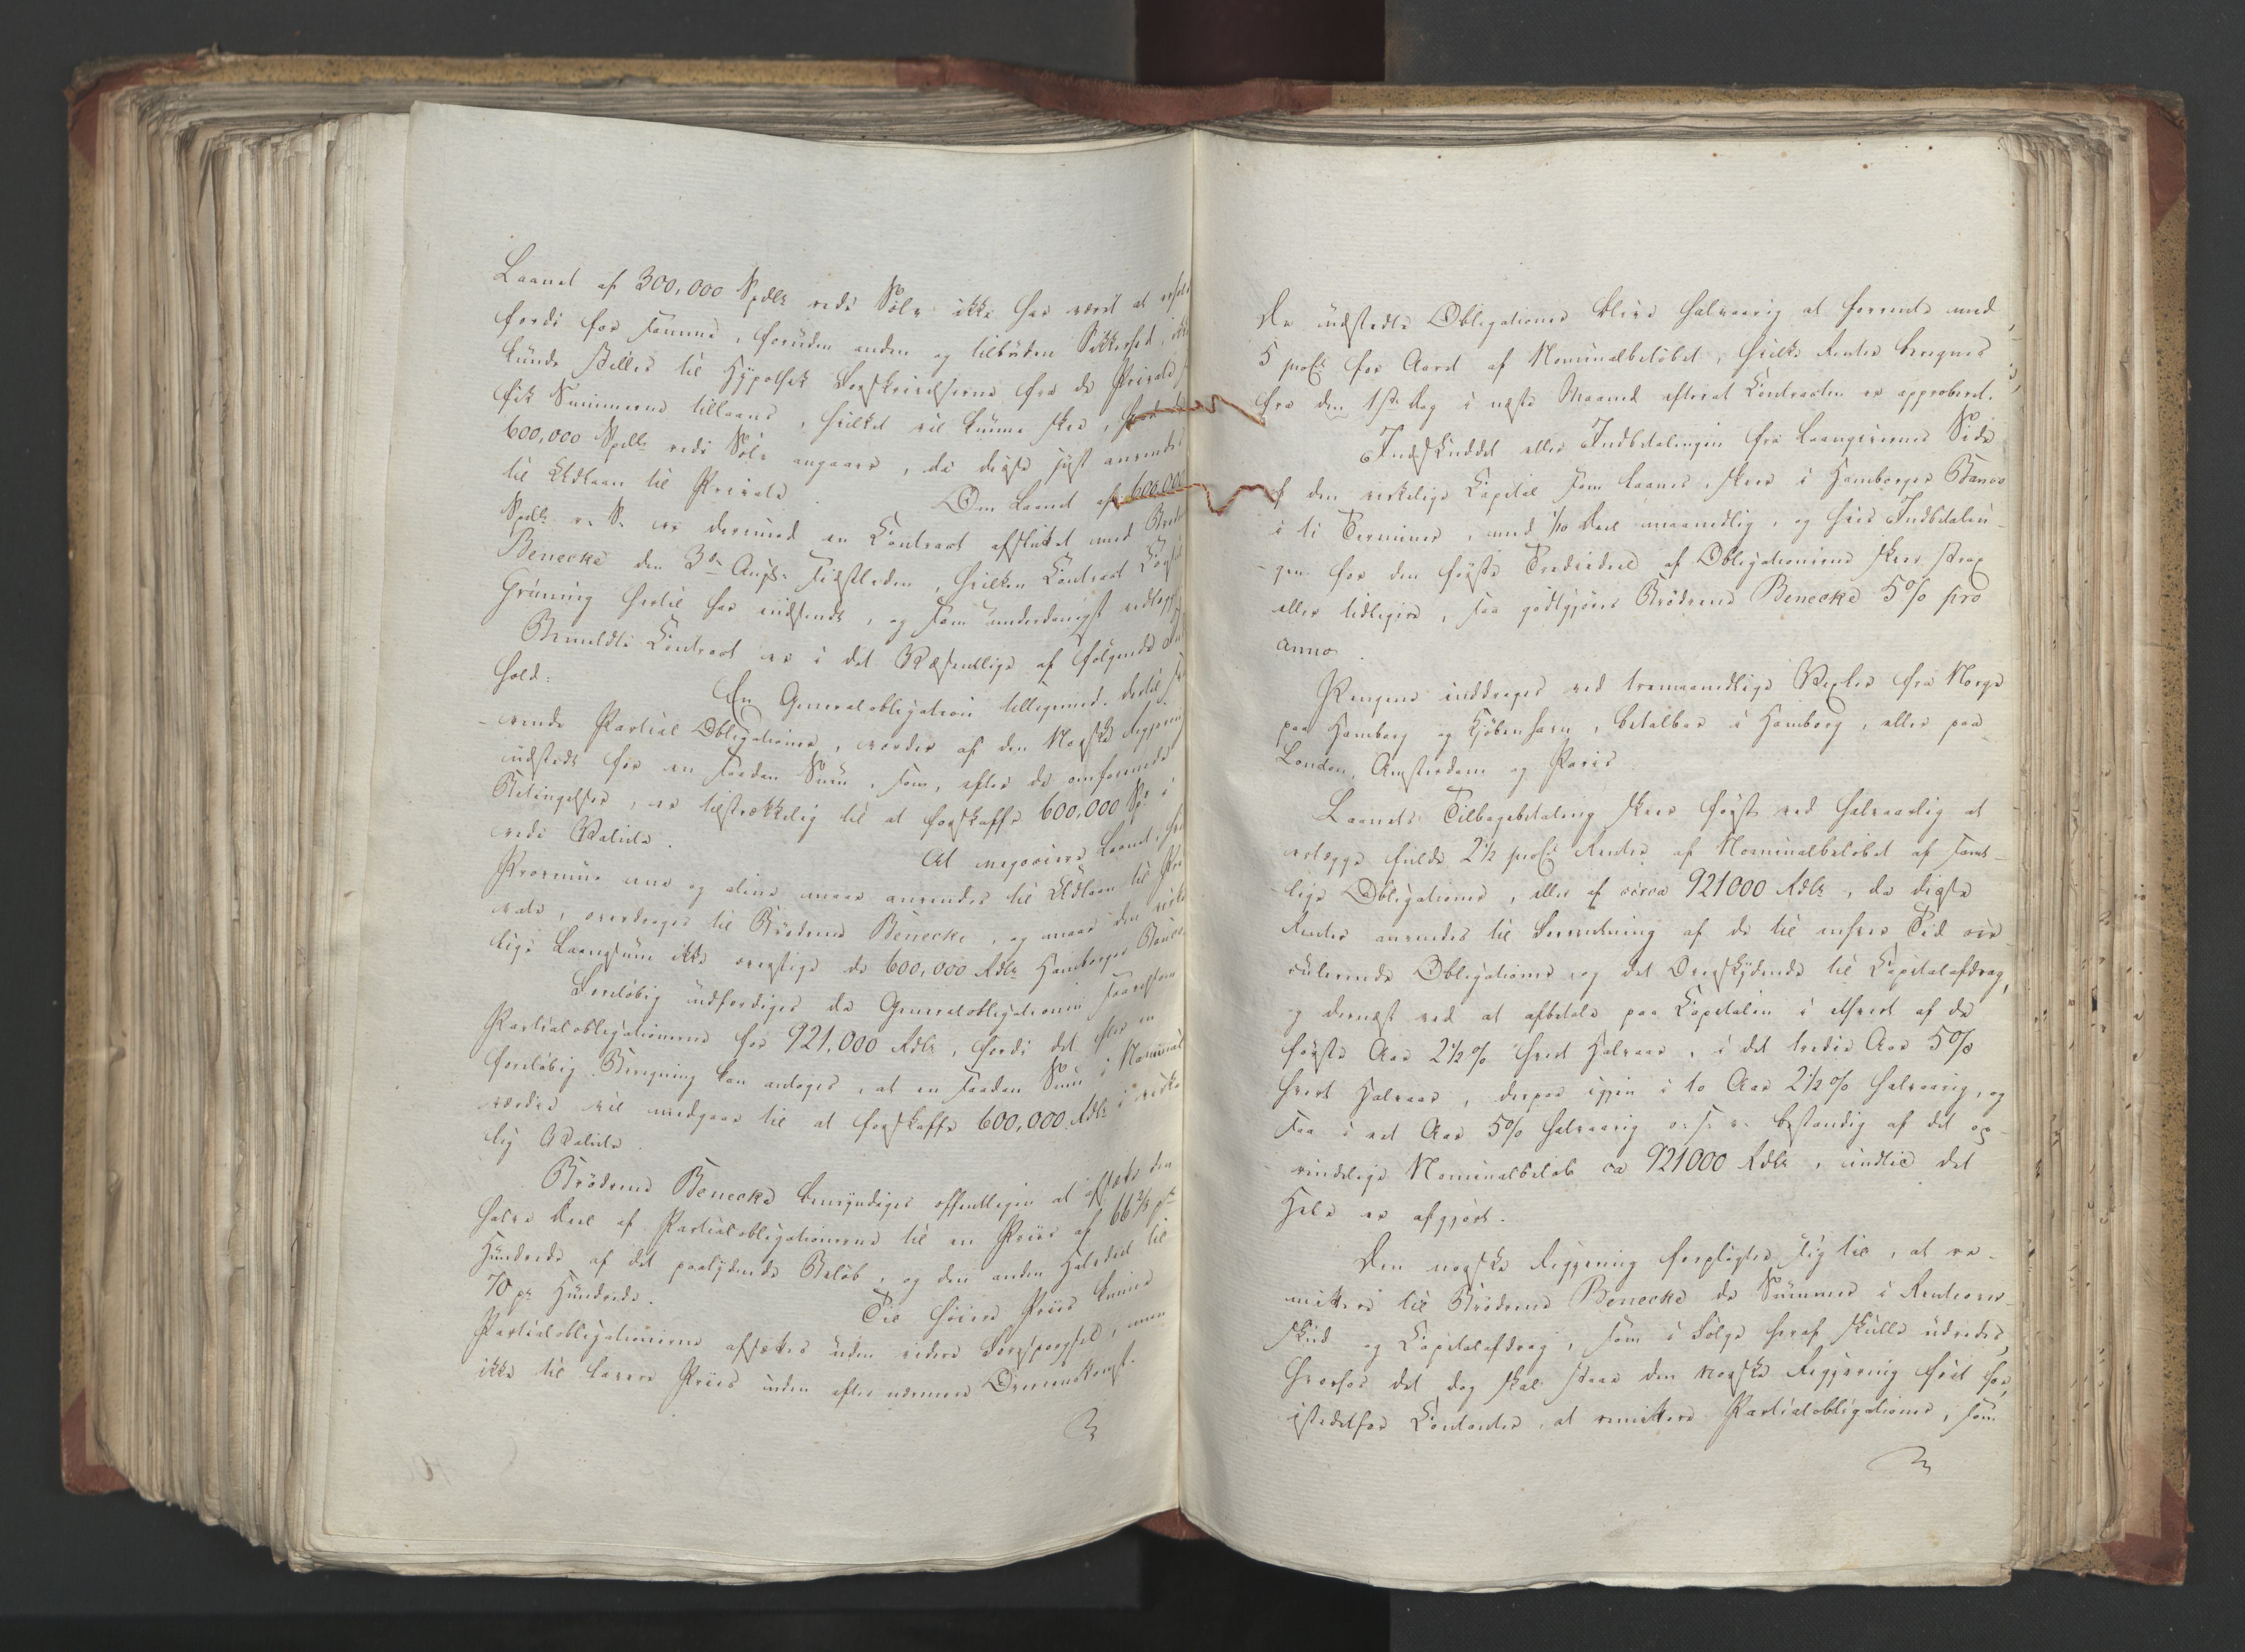 Laanet af 300,000 Spdlr rede Sølv ikke har været at erholde
fordi for samme, foruden anden og tilbuden Sikkerhed, ikke
kunde stilles til Hypothek Forskrivelserne fra de Private
fik Summerne tillaans, hvilket vil kunne skee,
600,000 Spdlr rede Sølv angaaer, da disse just anvendes
til Udlaan til Private.
Om Laanet af 600,000
Spdlr r. S. er derimod en Contract afsluttet med Brødrene
Benecke den 3de Augst. sidstleden, hvilken Contract Consul
Grüning hertil har indsendt, og som underdanigst vedlægges
Bemeldte Contract er i det Væsentlige af følgende Ind-
hold:
En Generalobligation tilligemed dertil hø-
rende Partial Obligationer, vorder af den Norske Regjering
udstedt for en saadan Sum, som, efter de omforenede
Betingelser, er tilstrækkelig til at forskaffe 600,000 Sp. i
rede Valuta.
At negociere Laanet, hvis
Provenue ene og alene maae anvendes til Udlaan til Pri-
vate, overdrages til Brødrene Benecke, og maae den virke-
lige Laanesum ikke overstige de 600,000 Rdlr Hamborger Banco.
Foreløbig udfærdiges da Generalobligationen saavelsom
Partialobligationerne for 921,000 Rdlr, fordi det efter en
foreløbig Beregning kan antages, at en saadan Sum i Nominal-
værdie vil medgaae til at forskaffe 600,000 Rdlr i virke-
lig Valuta.
Brødrene Benecke bemyndiges offentligen at afsætte den
halve Deel af Partialobligationerne til en Priis af 66 2/3 pr
Hundrede af det paalydende Beløb, og den anden Halvdeel til
70 pr Hundrede.
Til høiere Priis kunne
Partialobligationerne afsættes uden videre Forespørgsel, men
ikke til lavere Priis uden efter nærmere Overeenskomst.
De udstedte Obligationer blive halvaarig at forrente med
5 proCt for Aaret af Nominalbeløbet, hvilke Renter beregnes
fra den 1ste Dag i næste Maaned efterat Contracten er approberet.
Indskuddet eller Indbetalingen fra Laangivernes Side
af den virkelige Capital som laanes, skeer i Hamborger Banco
i ti Terminer, med 1/10 Deel maanedlig, og hvis Indbetalin-
gen for den første Trediedeel af Obligationerne skeer strax
eller tidligere, saa godtgjøres Brødrene Benecke 5% pro
anno.
Pengene inddrages ved tremaanedlige Vexler fra Norge
paa Hamborg og Kjøbenhavn, betalbar i Hamborg, eller paa
London, Amsterdam og Paris.
Laanets Tilbagebetaling skeer først ved halvaarlig at
erlægge fulde 2 1/2 proCt Rente af Nominalbeløbet af samt-
lige Obligationer, eller af circa 921000 Rdlr, da disse
Renter anvendes til Forrentning af de til enhver Tid cir-
culerende Obligationer og det Overskydende til Capitalafdrag,
og dernæst ved at afbetale paa Capitalen i ethvert af de
første Aar 2 1/2 % hvert Halvaar, i det tredie Aar 5%
hvert Halvaar, derpaa igjen i to Aar 2 1/2 % halvaarig, og
saa i eet Aar 5% halvaarig o. s. v. bestandig af det op-
rindelige Nominalbeløb ca 921000 Rdlr, indtil det
Hele er afgjort.
Den norske Regjering forpligter sig til, at re-
mittere til Brødrene Benecke de Summer i Renteover-
skud og Capitalafdrag, som i Følge heraf skulle udredes,
hvorhos det dog skal staae den norske Regjering frit for,
istedetfor Contanter, at remittere Partialobligationer, som